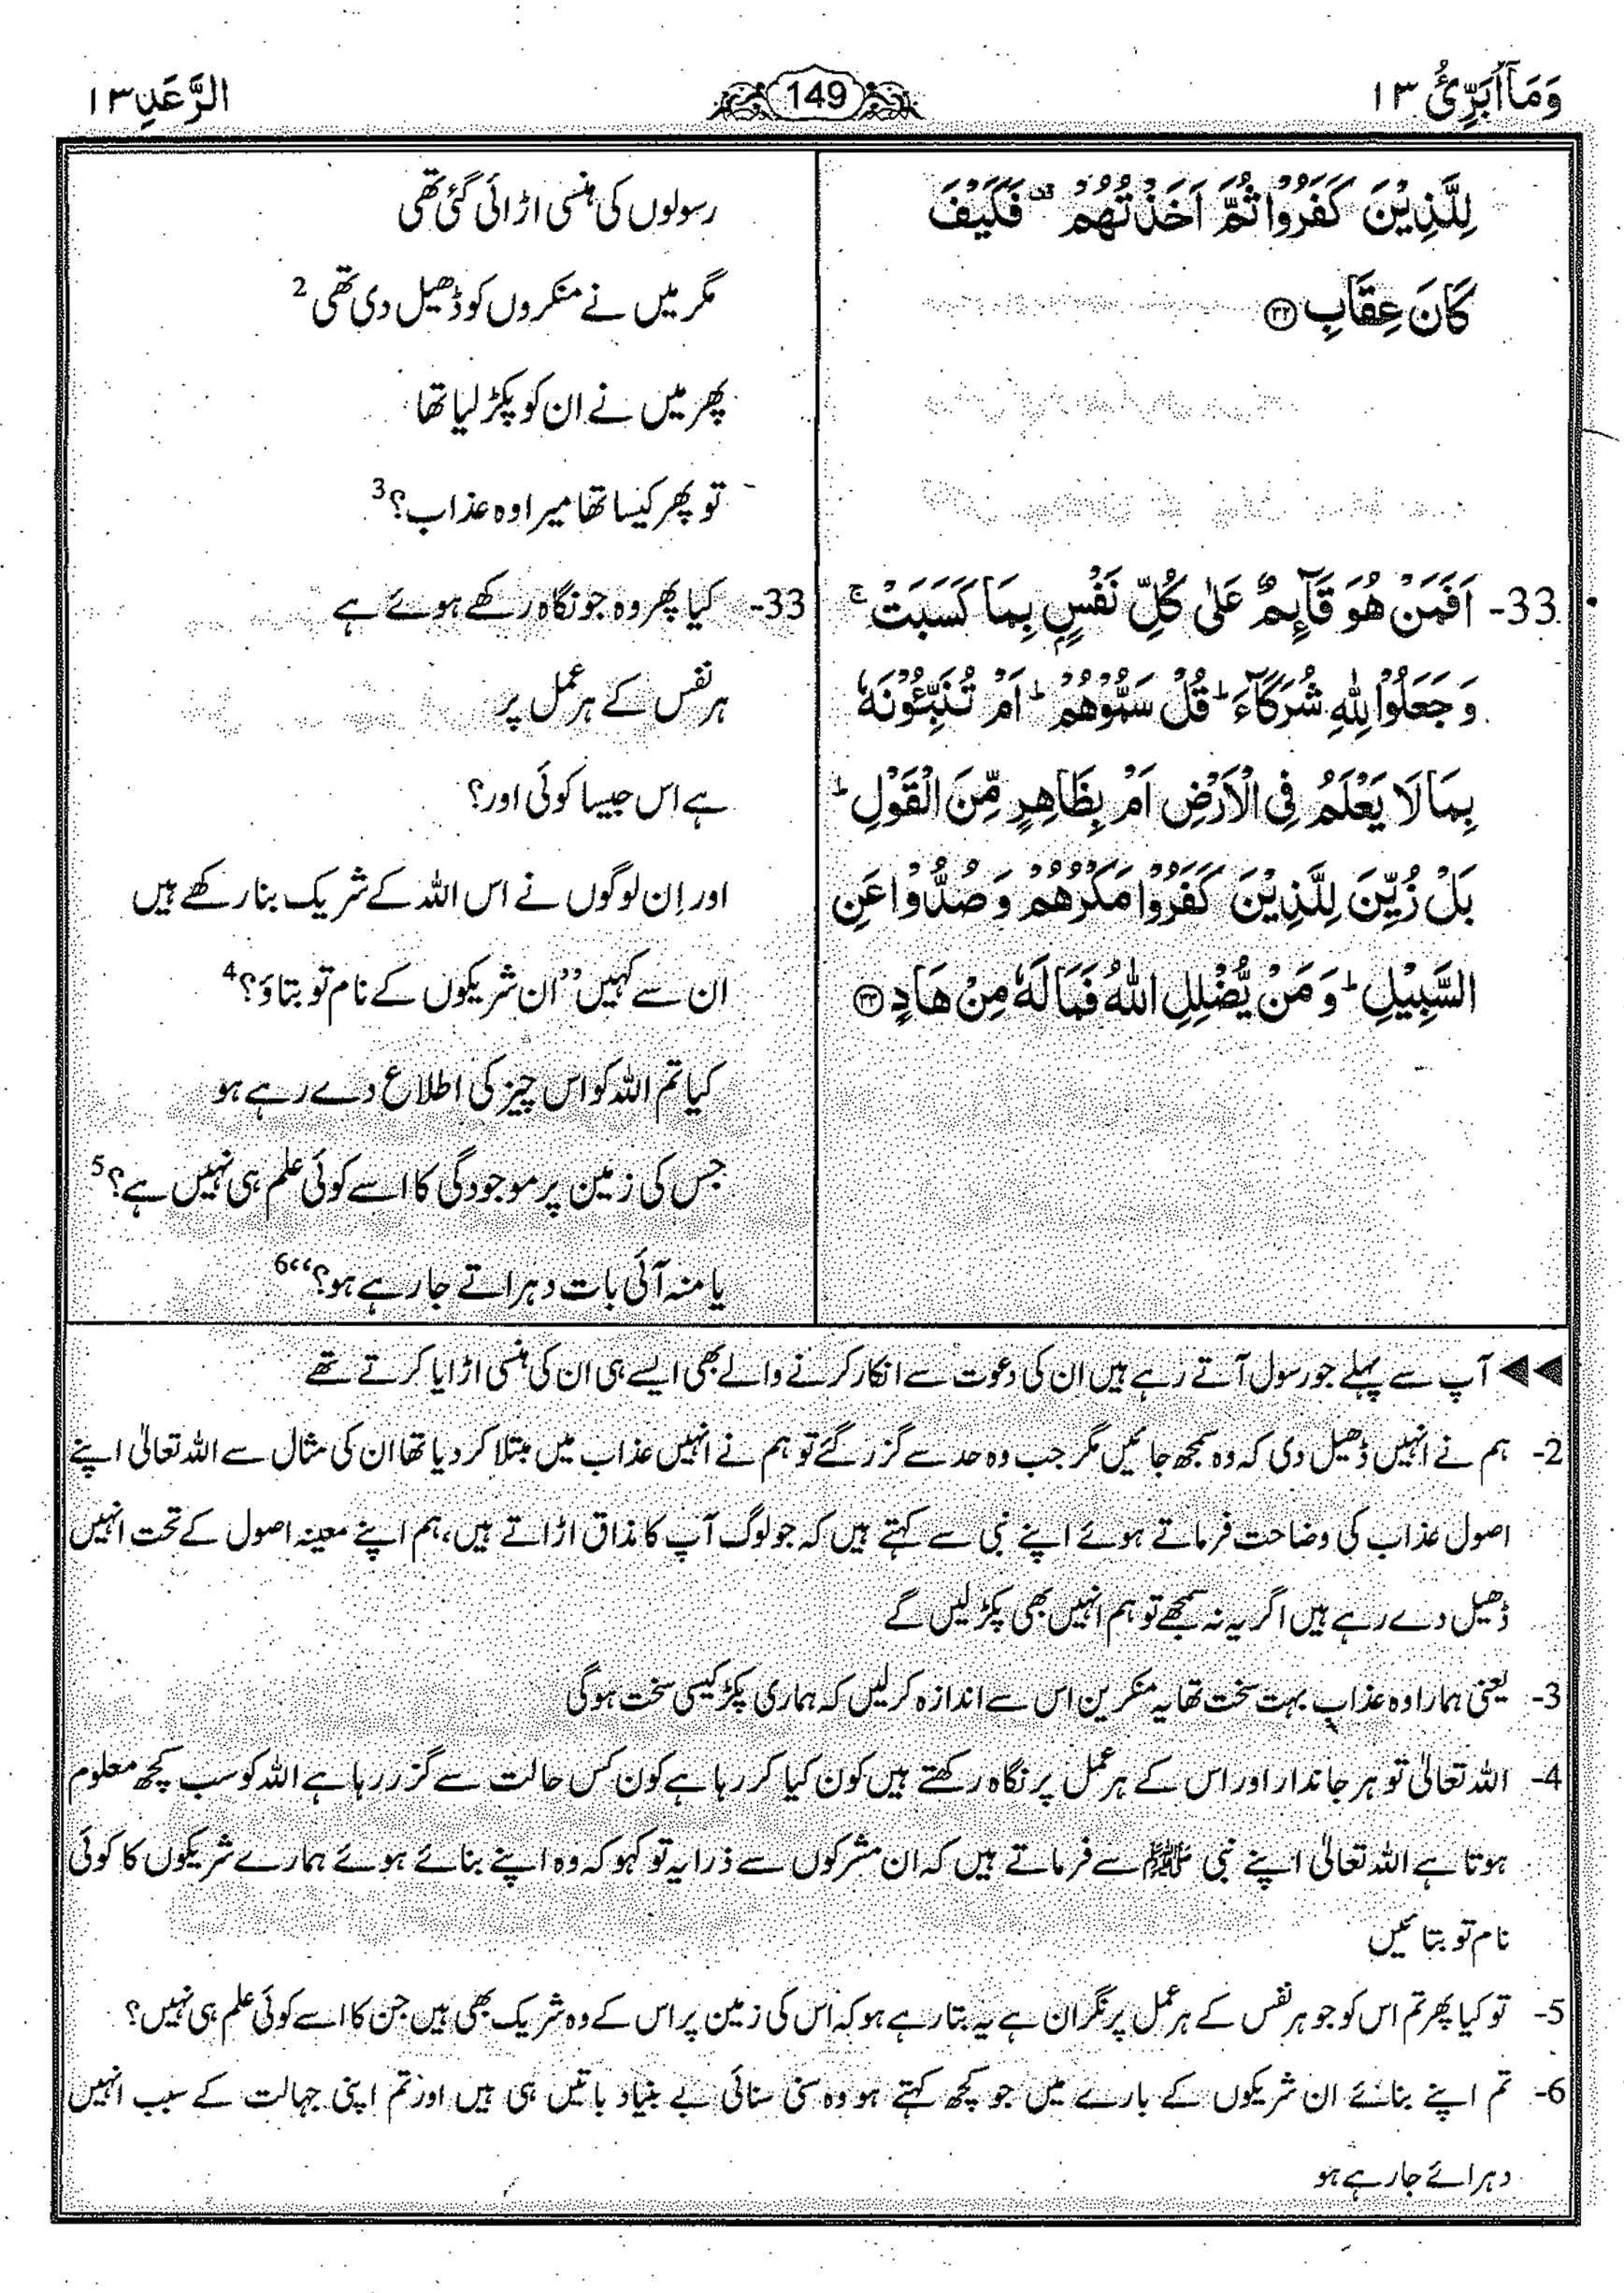 وَمَاۤ اُبَرِّئُ ۱۳
149
الرَّعْدِ ۱۳
لِلَّذِيْنَ كَفَرُوْا ثُمَّ اَخَذْتُهُمْ ۫ فَكَيْفَ
كَانَ عِقَابِ ۳۲
33- اَفَمَنْ هُوَ قَآىِٕمٌ عَلٰى كُلِّ نَفْسٍۭ بِمَا كَسَبَتْ ۚ
وَ جَعَلُوْا لِلّٰهِ شُرَكَآءَ ؕ قُلْ سَمُّوْهُمْ ؕ اَمْ تُنَبِّـُٔوْنَهٗ
بِمَا لَا يَعْلَمُ فِى الْاَرْضِ اَمْ بِظَاهِرٍ مِّنَ الْقَوْلِ ؕ
بَلْ زُيِّنَ لِلَّذِيْنَ كَفَرُوْا مَكْرُهُمْ وَ صُدُّوْا عَنِ
السَّبِيْلِ ؕ وَ مَنْ يُّضْلِلِ اللّٰهُ فَمَا لَهٗ مِنْ هَادٍ ۳۳
رسولوں کی ہنسی اڑائی گئی تھی
مگر میں نے منکروں کو ڈھیل دی تھی 2
پھر میں نے ان کو پکڑ لیا تھا
تو پھر کیسا تھا میرا وہ عذاب؟ 3
33- کیا پھر وہ جو نگاہ رکھے ہوئے ہے
ہر نفس کے ہر عمل پر
ہے اس جیسا کوئی اور؟
اور اِن لوگوں نے اس اللہ کے شریک بنا رکھے ہیں
ان سے کہیں ”ان شریکوں کے نام تو بتاؤ؟ 4
کیا تم اللہ کو اس چیز کی اطلاع دے رہے ہو
جس کی زمین پر موجودگی کا اسے کوئی علم ہی نہیں ہے؟ 5
یا منہ آئی بات دہراتے جا رہے ہو؟“ 6
◀◀ آپ سے پہلے جو رسول آتے رہے ہیں ان کی دعوت سے انکار کرنے والے بھی ایسے ہی ان کی ہنسی اڑایا کرتے تھے
2- ہم نے انہیں ڈھیل دی کہ وہ سمجھ جائیں مگر جب وہ حد سے گزر گئے تو ہم نے انہیں عذاب میں مبتلا کر دیا تھا ان کی مثال سے اللہ تعالیٰ اپنے
اصول عذاب کی وضاحت فرماتے ہوئے اپنے نبی سے کہتے ہیں کہ جو لوگ آپ کا مذاق اڑاتے ہیں، ہم اپنے معینہ اصول کے تحت انہیں
ڈھیل دے رہے ہیں اگر یہ نہ سمجھے تو ہم انہیں بھی پکڑ لیں گے
3- یعنی ہمارا وہ عذاب بہت سخت تھا یہ منکرین اس سے اندازہ کر لیں کہ ہماری پکڑ کیسی سخت ہوگی
4- اللہ تعالیٰ تو ہر جاندار اور اس کے ہر عمل پر نگاہ رکھتے ہیں کون کیا کر رہا ہے کون کس حالت سے گزر رہا ہے اللہ کو سب کچھ معلوم
ہوتا ہے اللہ تعالیٰ اپنے نبی ﷺ سے فرماتے ہیں کہ ان مشرکوں سے ذرا یہ تو کہو کہ وہ اپنے بنائے ہوئے ہمارے شریکوں کا کوئی
نام تو بتائیں
5- تو کیا پھر تم اس کو جو ہر نفس کے ہر عمل پر نگران ہے یہ بتا رہے ہو کہ اس کی زمین پر اس کے وہ شریک بھی ہیں جن کا اسے کوئی علم ہی نہیں؟
6- تم اپنے بنائے ان شریکوں کے بارے میں جو کچھ کہتے ہو وہ سنی سنائی بے بنیاد باتیں ہی ہیں اور تم اپنی جہالت کے سبب انہیں
دہرائے جا رہے ہو